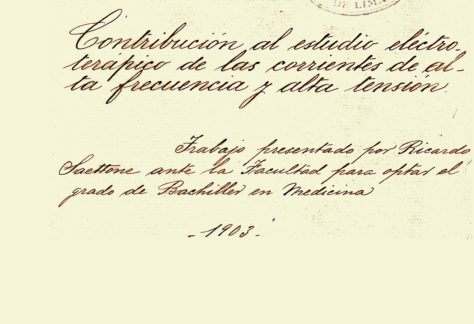 DE LIMA
Contribución al estudio eléctro-
terápico de las corrientes de al-
ta frecuencia y alta tensión.
Trabajo presentado por Ricardo
Saettone ante la Facultad para optar el
grado de Bachiller en Medicina
- 1903 -